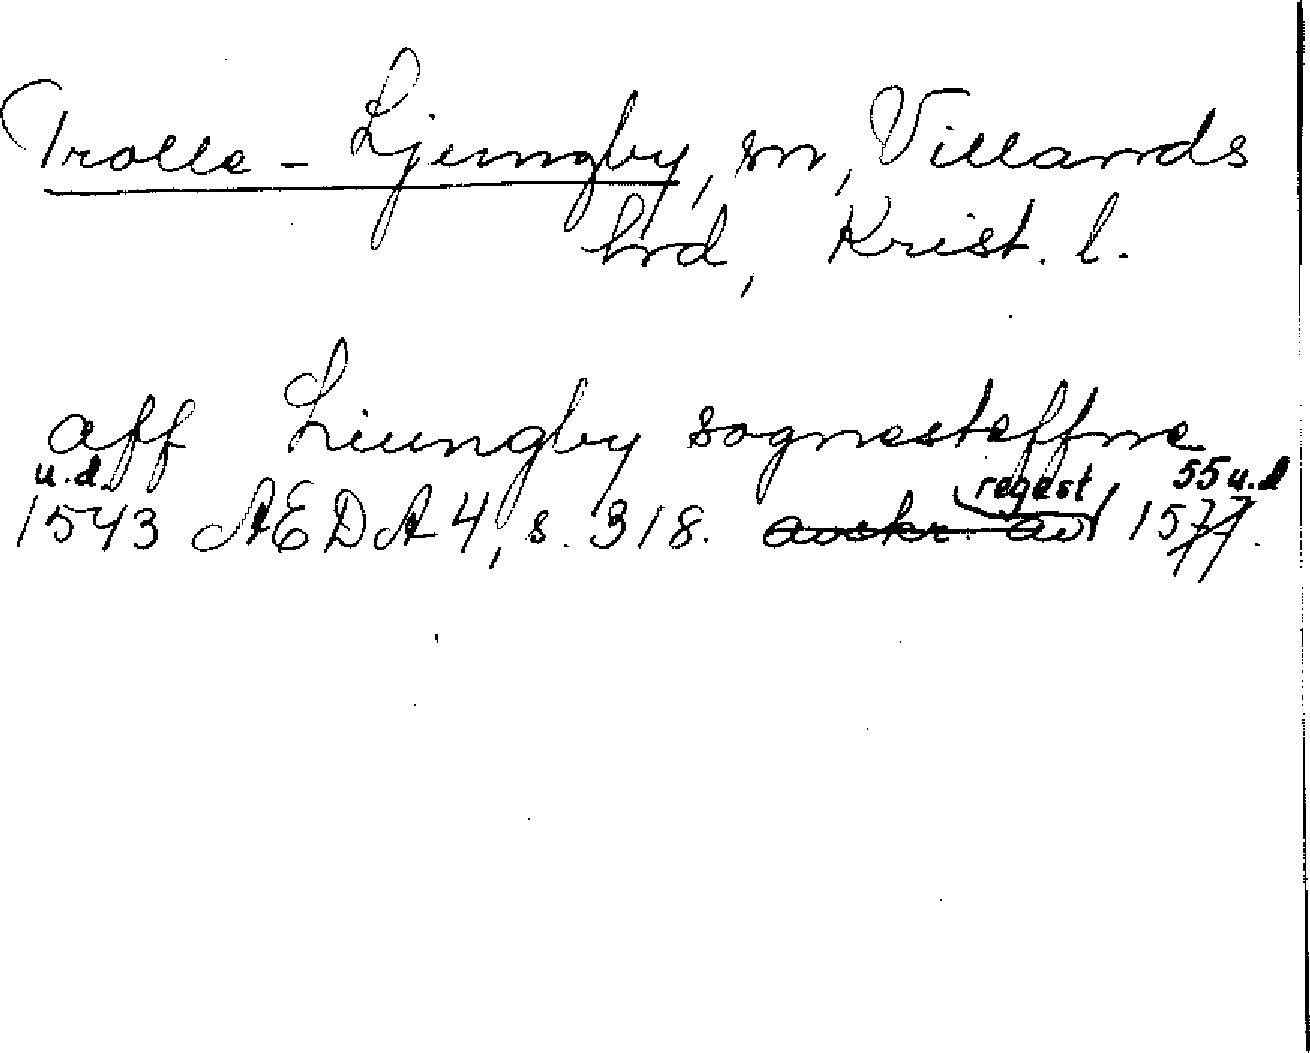 Trolle-Ljungby, sn, Villands
hrd, Krist. l.
aff Liungby sognesteffne
u.d. regest 55 u.d
1543 AEDA 4, s. 318. avskr. av 1577.